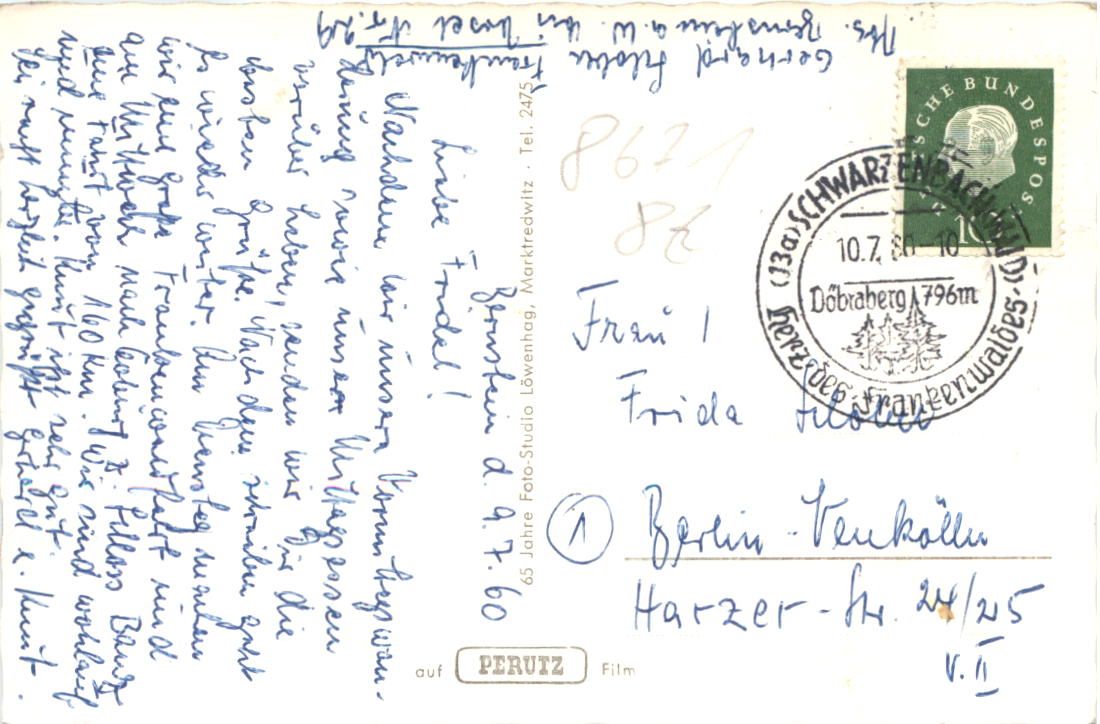 Abs. Bernstein a. W. bei Vosel Nr. 29
Gerhard Frankenwald
Bernstein d. 9. 7. 60
Liebe Friedel!
Nachdem wir unsere Vormittagswan-
derung sowie unser Mittagessen
vorüber haben, senden wir Dir die
besten Grüße. Nach dem schreiben geht
es wieder weiter. Am Dienstag machen
wir eine große Frankenwaldfahrt und
am Mittwoch nach Coburg z. Schloss Banz
eine Fahrt von 160 km. Wir sind wohlauf
und munter. Kunt ist sehr gut.
Sei recht herzlich gegrüßt Gerhard u. Kunt.
65 Jahre Foto-Studio Löwenhag, Marktredwitz · Tel. 2475
auf PERUTZ Film
8671
86
DEUTSCHE BUNDESPOST
10
(13a) SCHWARZENBACH (WALD)
10.7.60-10
Döbraberg 796m
Herz des Frankenwaldes
Frau
Frida
1
Berlin-Neukölln
Harzer-Str. 24/25
V. II